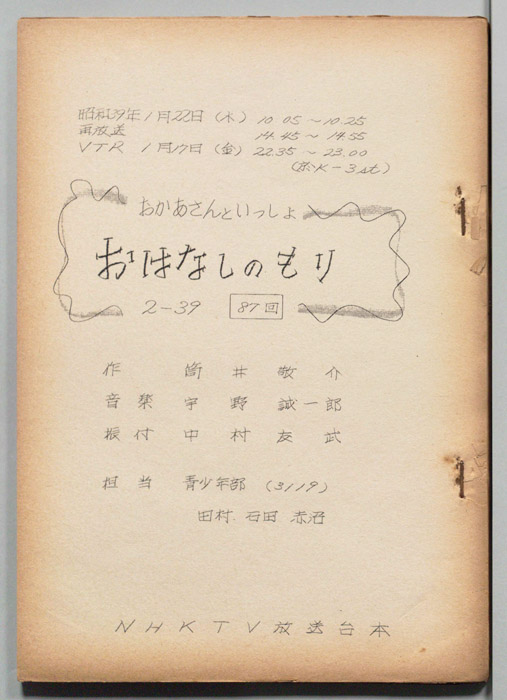 昭和39年1月22日（木） 10.05～10.25
再放送 14.45～14.55
VTR 1月17日（金） 22.35～23.00
おかあさんといっしょ
おはなしのもり
2-39 87回
作 筒井敬介
音楽 宇野誠一郎
振付 中村友武
担当 青少年部 (3119)
田村 石田 赤沼
NHKTV放送台本